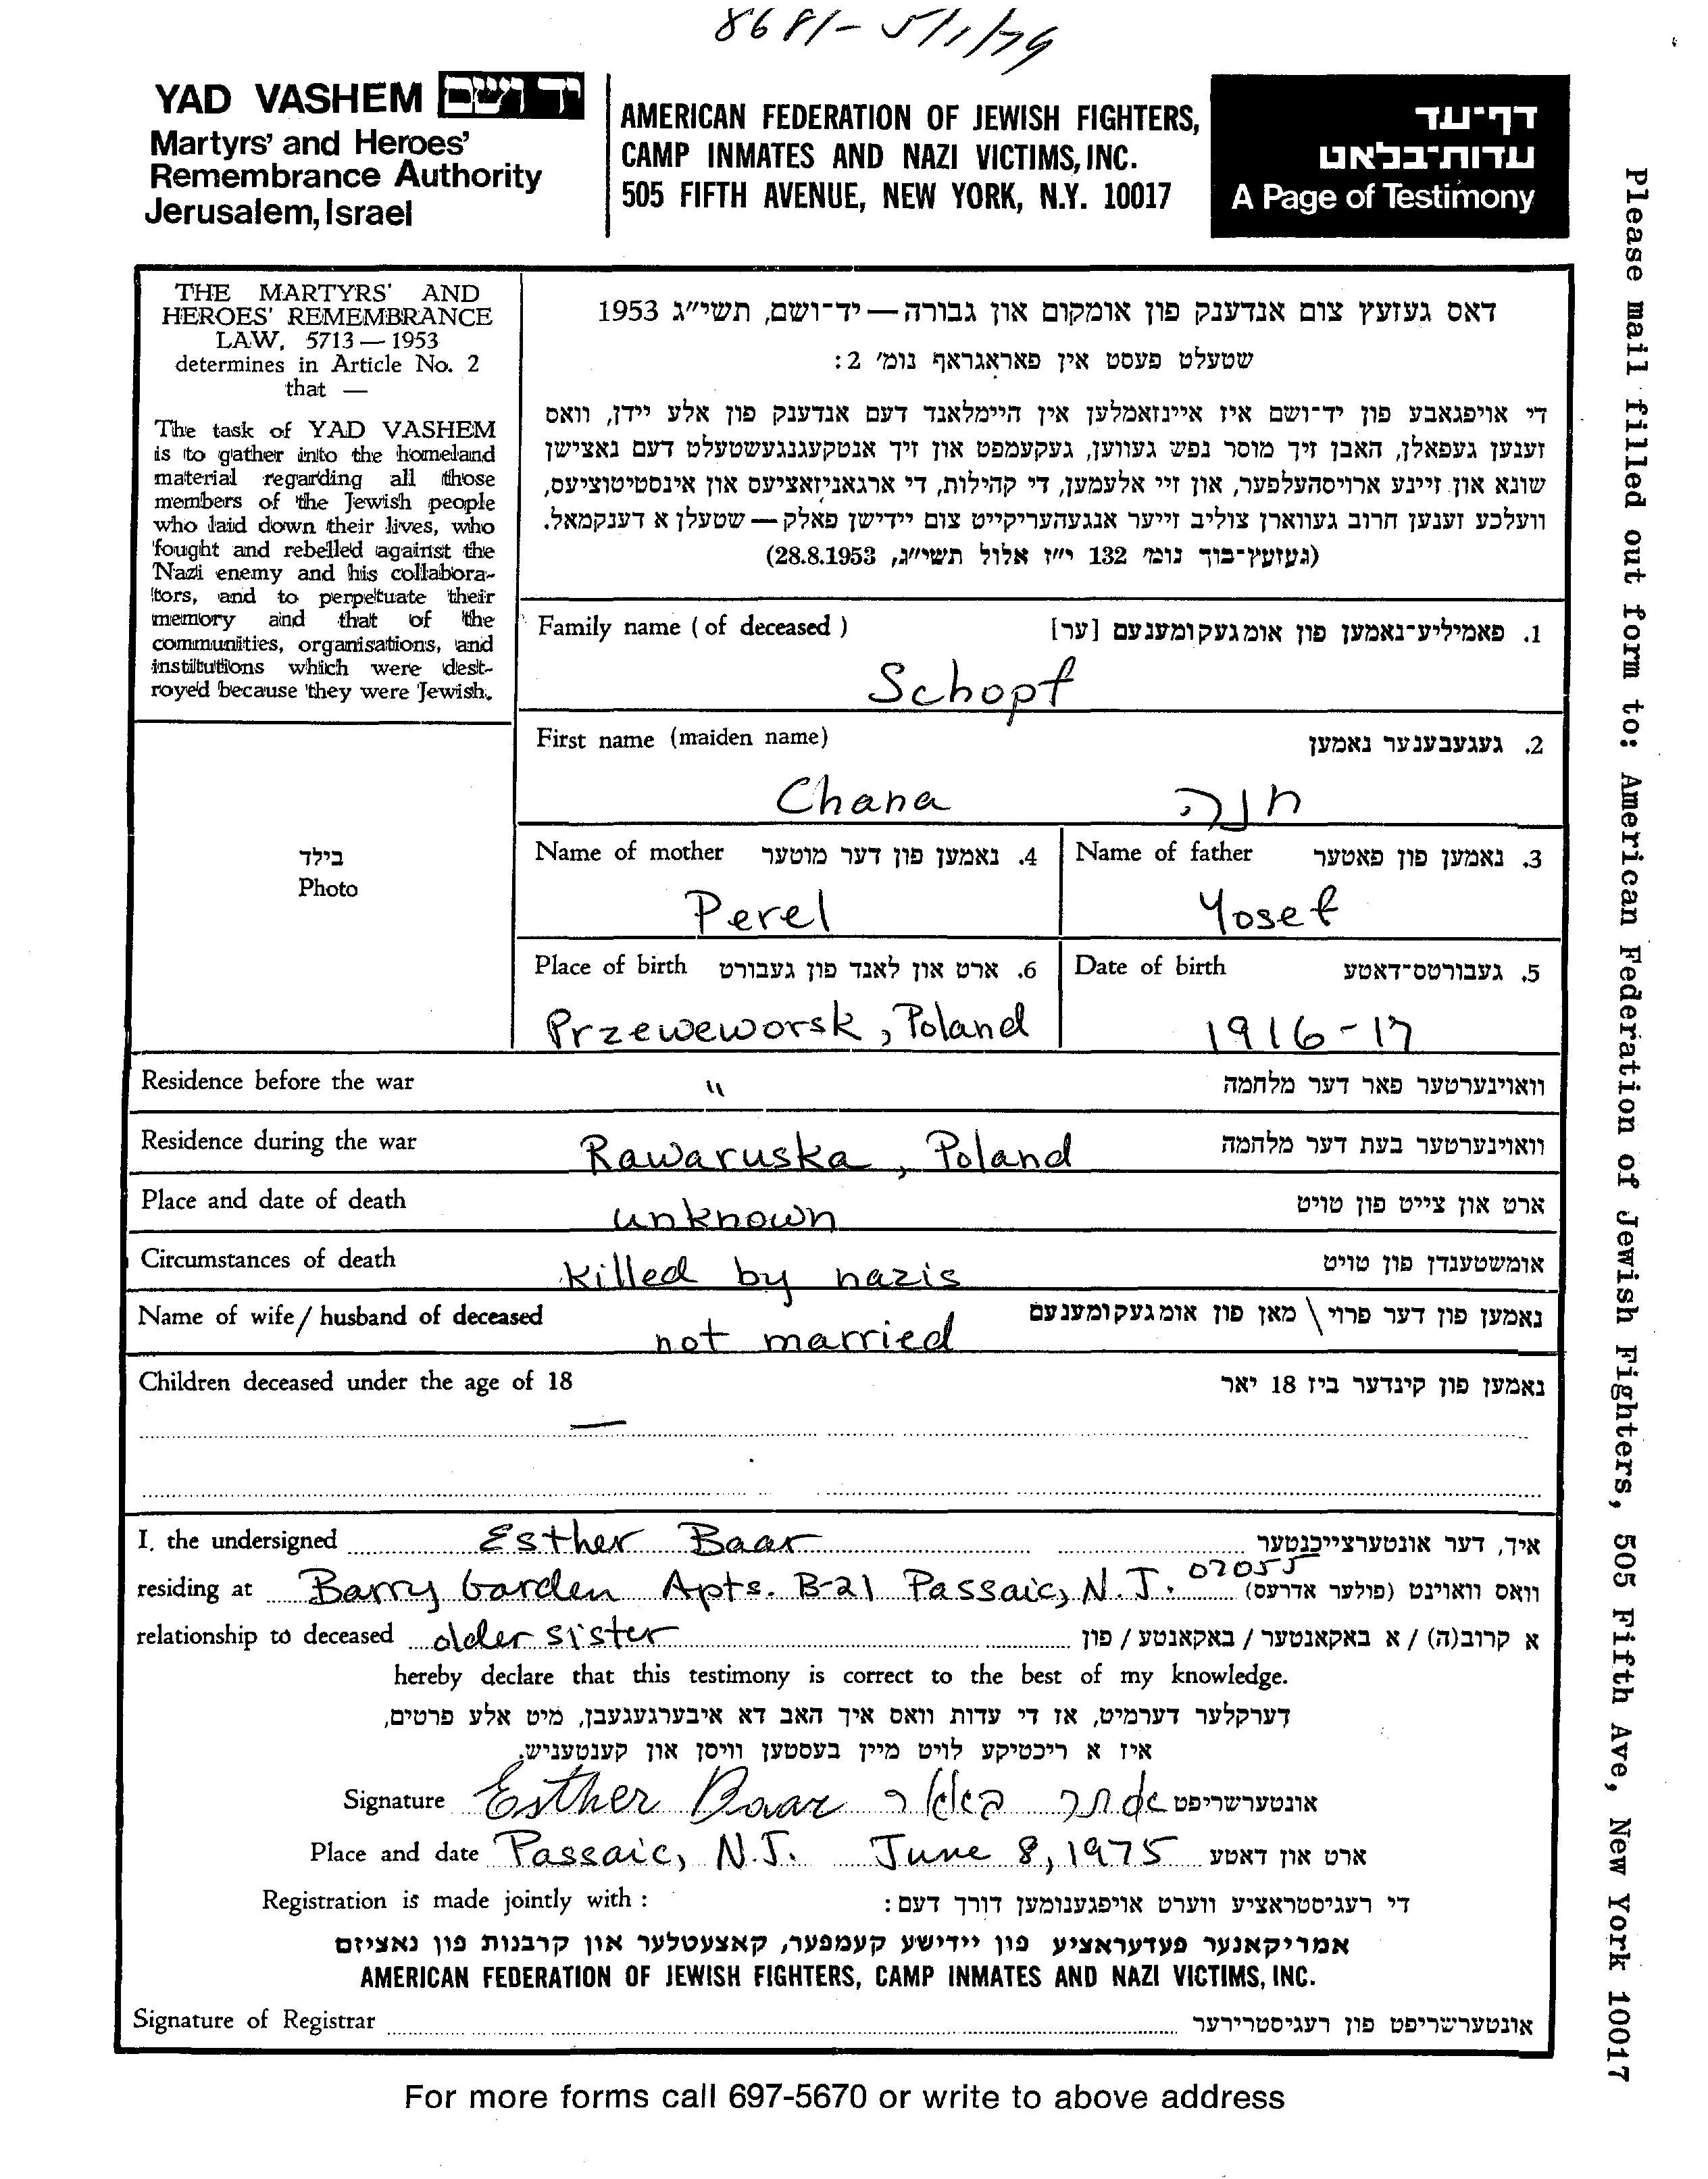 8681-5/1/79
YAD VASHEM יד ושם
Martyrs' and Heroes'
Remembrance Authority
Jerusalem, Israel
AMERICAN FEDERATION OF JEWISH FIGHTERS,
CAMP INMATES AND NAZI VICTIMS, INC.
505 FIFTH AVENUE, NEW YORK, N.Y. 10017
דף־עד
עדות־בלאט
A Page of Testimony
THE MARTYRS' AND
HEROES' REMEMBRANCE
LAW, 5713 — 1953
determines in Article No. 2
that —
The task of YAD VASHEM
is to gather into the homeland
material regarding all those
members of the Jewish people
who laid down their lives, who
fought and rebelled against the
Nazi enemy and his collabora-
tors, and to perpetuate their
memory and that of the
communities, organisations, and
institutions which were dest-
royed because they were Jewish.
דאס געזעץ צום אנדענק פון אומקום און גבורה — יד־ושם, תשי"ג 1953
שטעלט פעסט אין פאראגראף נומ' 2:
די אויפגאבע פון יד־ושם איז איינזאמלען אין היימלאנד דעם אנדענק פון אלע יידן, וואס
זענען געפאלן, האבן זיך מוסר נפש געווען, געקעמפט און זיך אנטקעגנגעשטעלט דעם נאצישן
שונא און זיינע ארויסהעלפער, און זיי אלעמען, די קהילות, די ארגאניזאציעס און אינסטיטוציעס,
וועלכע זענען חרוב געווארן צוליב זייער אנגעהעריקייט צום יידישן פאלק — שטעלן א דענקמאל.
(געזעץ־בוך נומ' 132 י"ז אלול תשי"ג, 28.8.1953)
Family name (of deceased) 1. פאמיליע־נאמען פון אומגעקומענעם [ער]
Schopf
First name (maiden name) 2. געגעבענער נאמען
Chana חנה
בילד
Photo
Name of mother 4. נאמען פון דער מוטער Name of father 3. נאמען פון פאטער
Perel Yosef
Place of birth 6. ארט און לאנד פון געבורט Date of birth 5. געבורטס־דאטע
Przeweworsk, Poland 1916-17
Residence before the war " וואוינערטער פאר דער מלחמה
Residence during the war Rawaruska, Poland וואוינערטער בעת דער מלחמה
Place and date of death unknown ארט און צייט פון טויט
Circumstances of death killed by nazis אומשטענדן פון טויט
Name of wife / husband of deceased not married נאמען פון דער פרוי \ מאן פון אומגעקומענעם
Children deceased under the age of 18 — נאמען פון קינדער ביז 18 יאר
I, the undersigned Esther Baar איך, דער אונטערצייכנטער
residing at Barry Garden Apts. B-21 Passaic, N.J. 07055 וואס וואוינט (פולער אדרעס)
relationship to deceased older sister א קרוב(ה) / א באקאנטער / באקאנטע / פון
hereby declare that this testimony is correct to the best of my knowledge.
דערקלער דערמיט, אז די עדות וואס איך האב דא איבערגעגעבן, מיט אלע פרטים,
איז א ריכטיקע לויט מיין בעסטען וויסן און קענטעניש.
Signature Esther Baar אסתר באאר אונטערשריפט
Place and date Passaic, N.J. June 8, 1975 ארט און דאטע
Registration is made jointly with: די רעגיסטראציע ווערט אויפגענומען דורך דעם:
אמריקאנער פעדעראציע פון יידישע קעמפער, קאצעטלער און קרבנות פון נאציזם
AMERICAN FEDERATION OF JEWISH FIGHTERS, CAMP INMATES AND NAZI VICTIMS, INC.
Signature of Registrar אונטערשריפט פון רעגיסטרירער
For more forms call 697-5670 or write to above address
Please mail filled out form to: American Federation of Jewish Fighters, 505 Fifth Ave, New York 10017